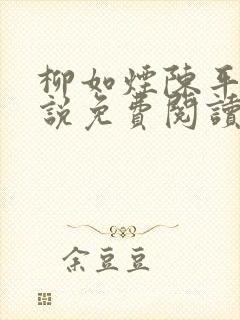 柳如煙陳平
説免費閱讀
余豆豆